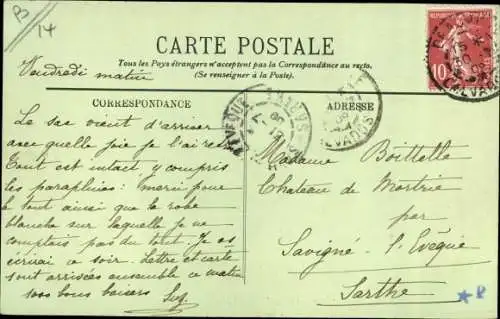 B
14
CARTE POSTALE
Tous les Pays étrangers n'acceptent pas la Correspondance au recto.
(Se renseigner à la Poste).
Vendredi matin
CORRESPONDANCE
ADRESSE
10
Le sac vient d'arriver
avec quelle joie je l'ai
Tout est intact y compris
les parapluies: merci pour
le tout ainsi que la robe
blanche sur laquelle je ne
comptais pas du tout. Je
écrirai ce soir. Lettre et carte
sont arrivées ensemble ce matin
bons baisers
Madame Boittelle
Château de Mortrie
par
Savigné-l'Evêque
Sarthe